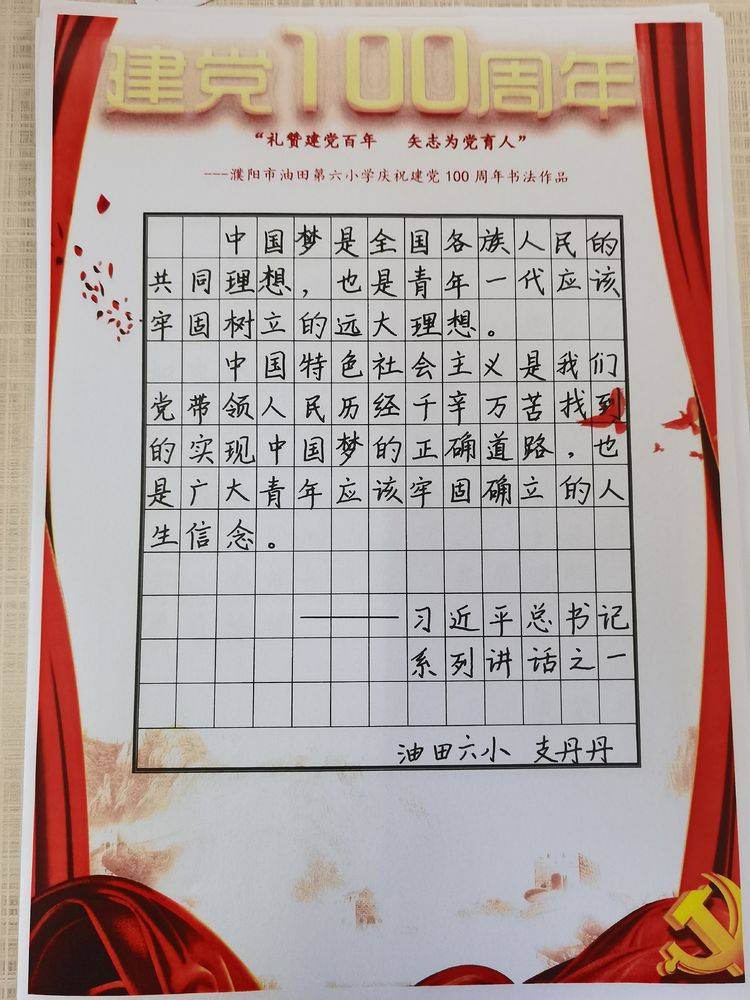 建党100周年
“礼赞建党百年 矢志为党育人”
---濮阳市油田第六小学庆祝建党100周年书法作品
中国梦是全国各族人民的
共同理想，也是青年一代应该
牢固树立的远大理想。
中国特色社会主义是我们
党带领人民历经千辛万苦找到
的实现中国梦的正确道路，也
是广大青年应该牢固确立的人
生信念。
——习近平总书记
系列讲话之一
油田六小 支丹丹